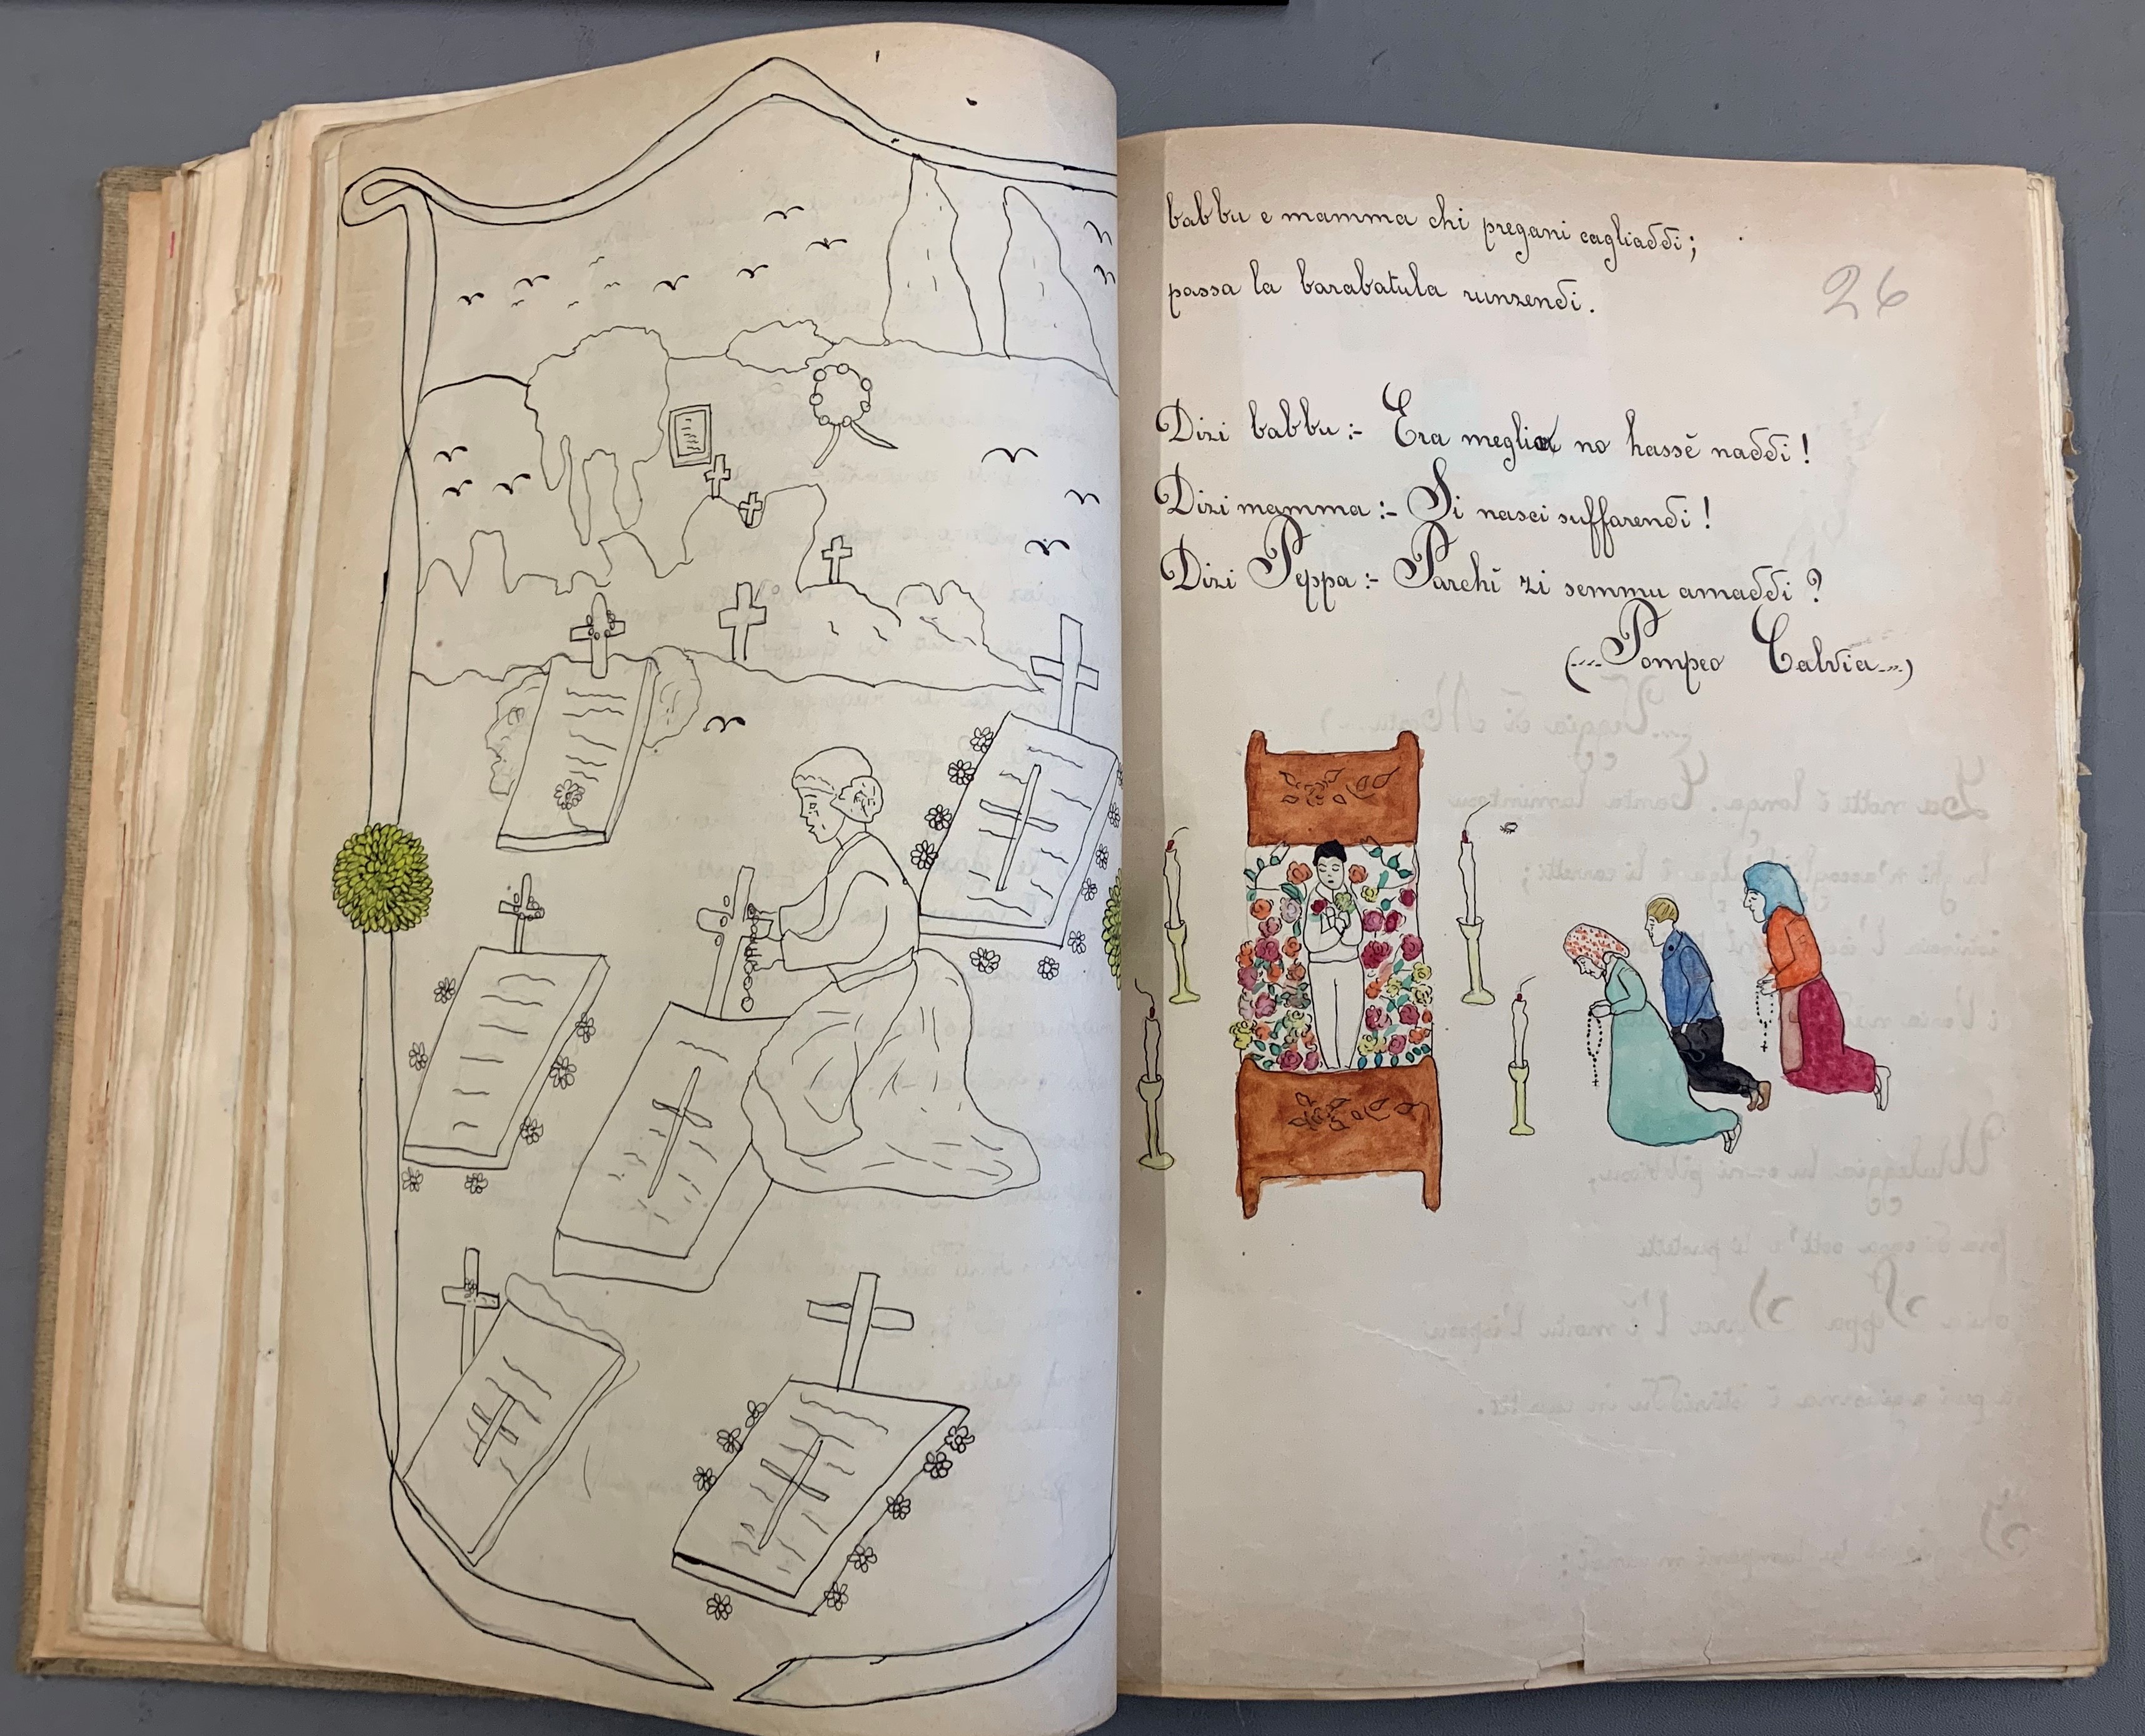 babbu e mamma chi pregani cagliaddi;
passa la barabatula runzendi.
26
Dizi babbu :- Era meglio no hassè naddi!
Dizi mamma :- Si nasci suffarendi!
Dizi Peppa :- Parchì zi semmu amaddi?
(.... Pompeo Calvia ....)